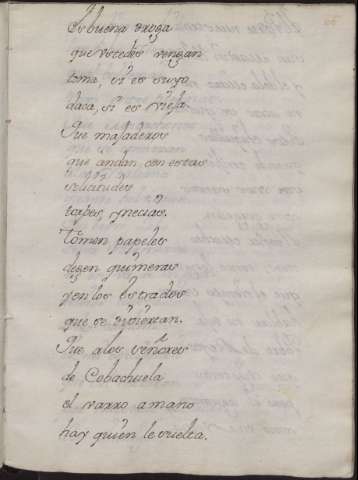 Es buena droga
que ustedes vengan
toma, si es suyo
daca, si es vieja.
Que majaderos
que andan con estas
solicitudes
torpes, y necias.
Tomen papeles
dejen quimeras
y en los estrados
que se diviertan.
Que a los señores
de Cobachuela
el varro a mano
hay quien le vuelta.